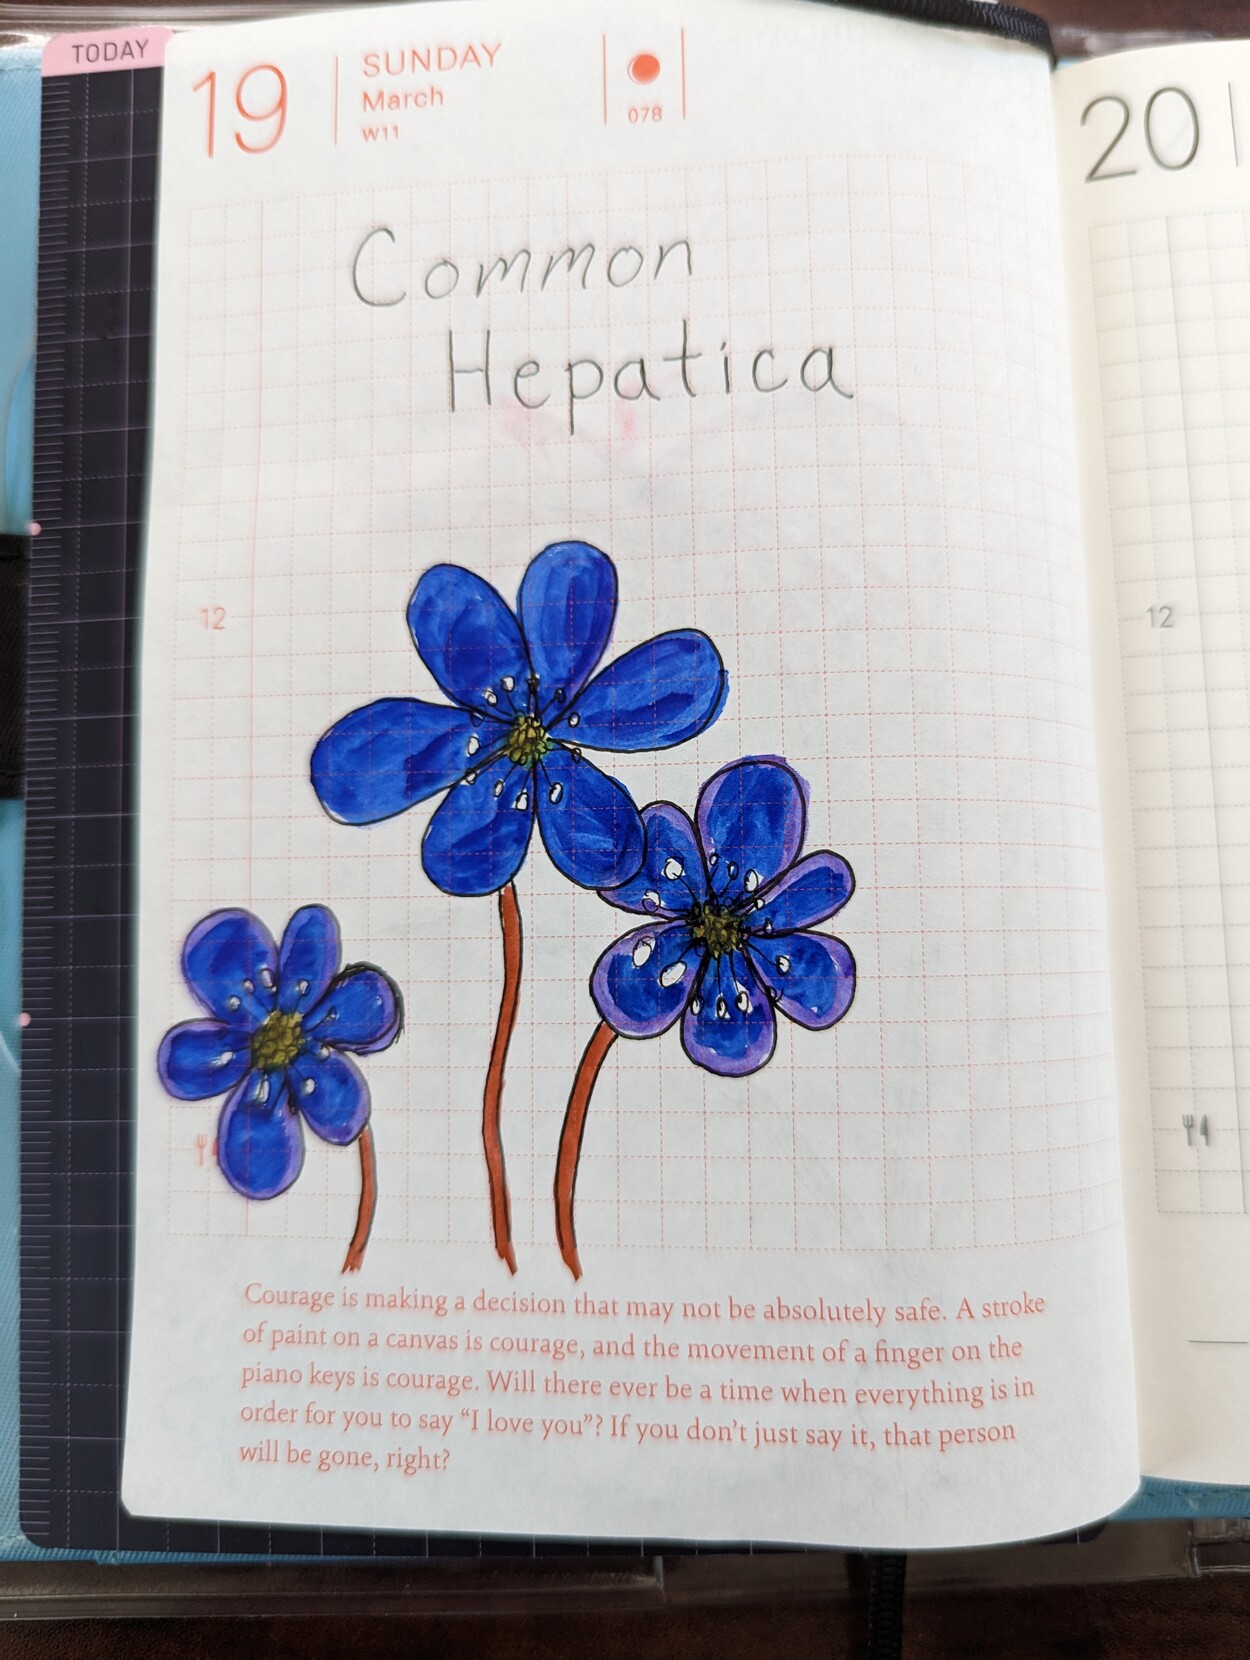 TODAY
19
SUNDAY
March
W11
078
20
Common
Hepatica
12
12
Courage is making a decision that may not be absolutely safe. A stroke
of paint on a canvas is courage, and the movement of a finger on the
piano keys is courage. Will there ever be a time when everything is in
order for you to say “I love you”? If you don’t just say it, that person
will be gone, right?